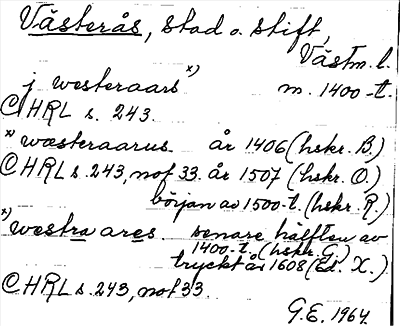 Västerås, stad o. stift,
Västm. l.
j westeraars x) m. 1400-t.
CHRL s. 243.
x) wæsteraarus. år 1406 (hskr. B.)
CHRL s. 243, not 33. år 1507 (hskr. O.)
början av 1500-t. (hskr. R.)
x) westra ares. senare hälften av
1400-t. (hskr. G.)
tryckt år 1608 (Ed. X.)
CHRL s. 243, not 33.
G.E. 1964.